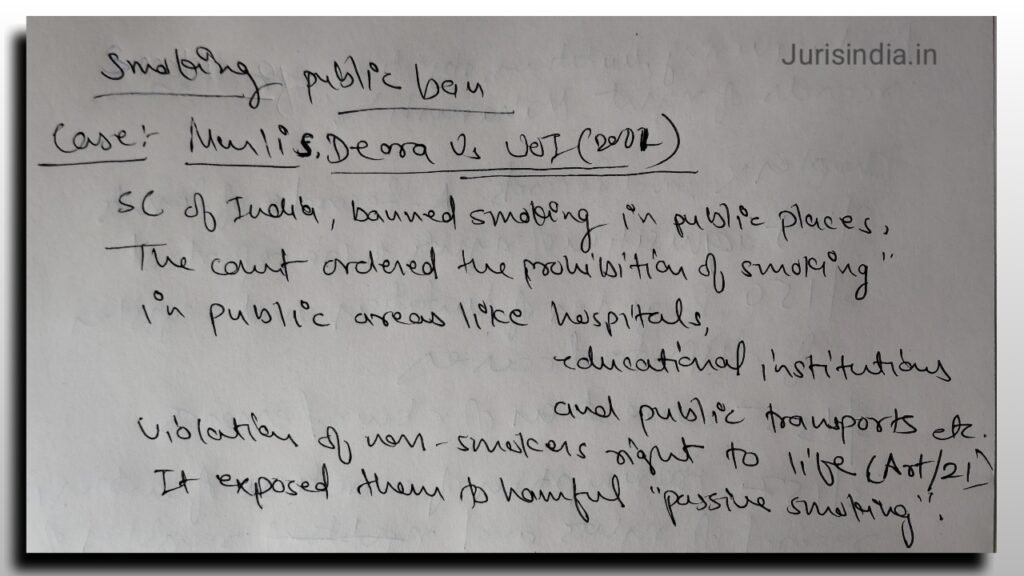 Jurisindia.in
Smoking public ban
Case:- Murli S. Deora Vs UOI (2001)
SC of India, banned smoking in public places,
The court ordered the prohibition of smoking"
in public areas like hospitals,
educational institutions
and public transports etc.
Violation of non-smokers right to life (Art/21)
It exposed them to harmful "passive smoking".